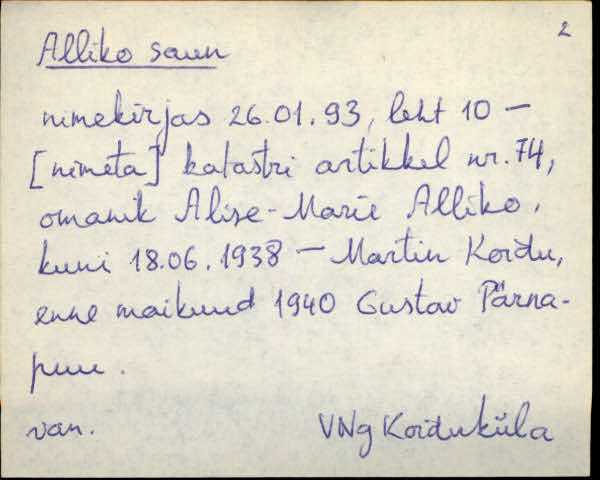 2
Alliko saun
nimekirjas 26.01.93, leht 10 –
[nimeta] katastri artikkel nr. 74,
omanik Alise-Marie Alliko,
kuni 18.06.1938 – Martin Koidu,
enne maikuud 1940 Gustav Pärna-
puu.
van. VNg Koiduküla